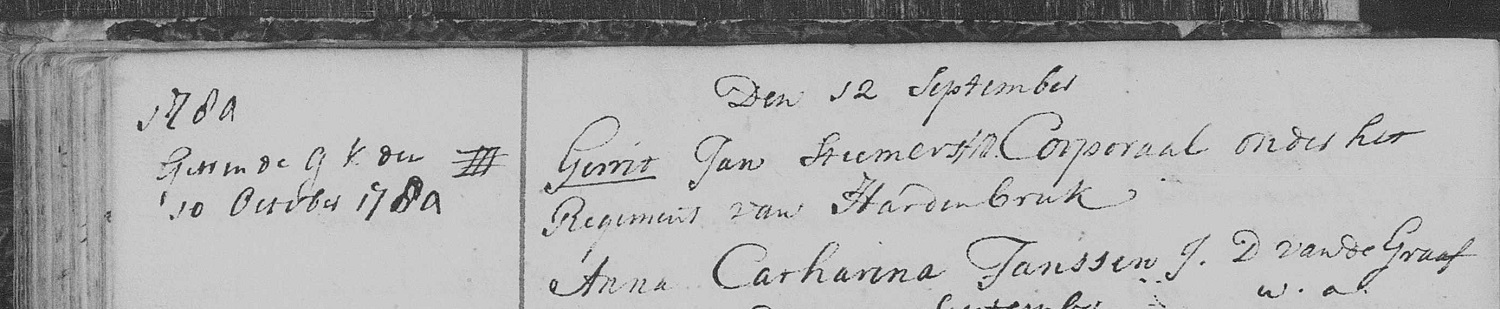 1789
Get in de G K den III
10 October 1789
Den 12 September
Gerrit Jan Steemers J M. Corporaal onder het
Regiment van Hardenbruk
Anna Catharina Janssen J. D van de Graaf
w. a.
September